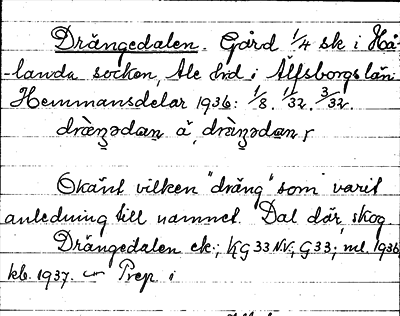 Drängedalen. Gård 1/4 sk i Hå-
-landa socken, Ale hrd i Älfsborgs län
Hemmansdelar 1936: 1/8. 1/32. 3/32.
Okänt vilken "dräng" som varit
anledning till namnet. Dal där, skog
Drängedalen ek.; KG 33 NV; G 33; ml. 1936
kb. 1937. – Prep i